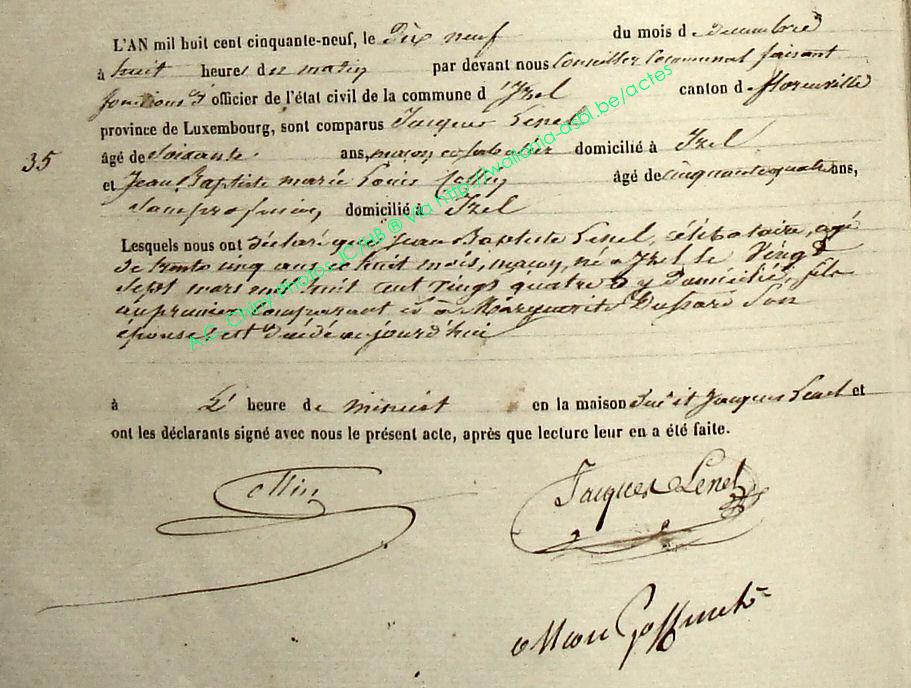 L'AN mil huit cent cinquante-neuf, le Dix neuf du mois d e decembre
à huit heures du matin par devant nous Conseiller Communal faisant
fonctions d'officier de l'état civil de la commune d 'Izel canton d e florenville
province de Luxembourg, sont comparus Jacques Lenel
35
âgé de Soixante ans, maçon domicilié à Izel
et Jean Baptiste marie Louis Collin âgé de cinquante quatre ans,
Sans profession, domicilié à Izel
Lesquels nous ont déclaré que Jean Baptiste Lenel, célibataire, agé
de trente cinq ans et huit mois, maçon, né a Izel le Vingt
Sept mars mil huit cent vingt quatre y domicilié, fils
du premier comparant et à Marguerite Son
épouse est décédé aujourd'hui
à L' heure de minuit en la maison Jacques Lenel et
ont les déclarants signé avec nous le présent acte, après que lecture leur en a été faite.
Collin
Jacques Lenel
Goffinet
A.C. Chiny photos JC/HB ® via http://wallonia-asbl.be/actes